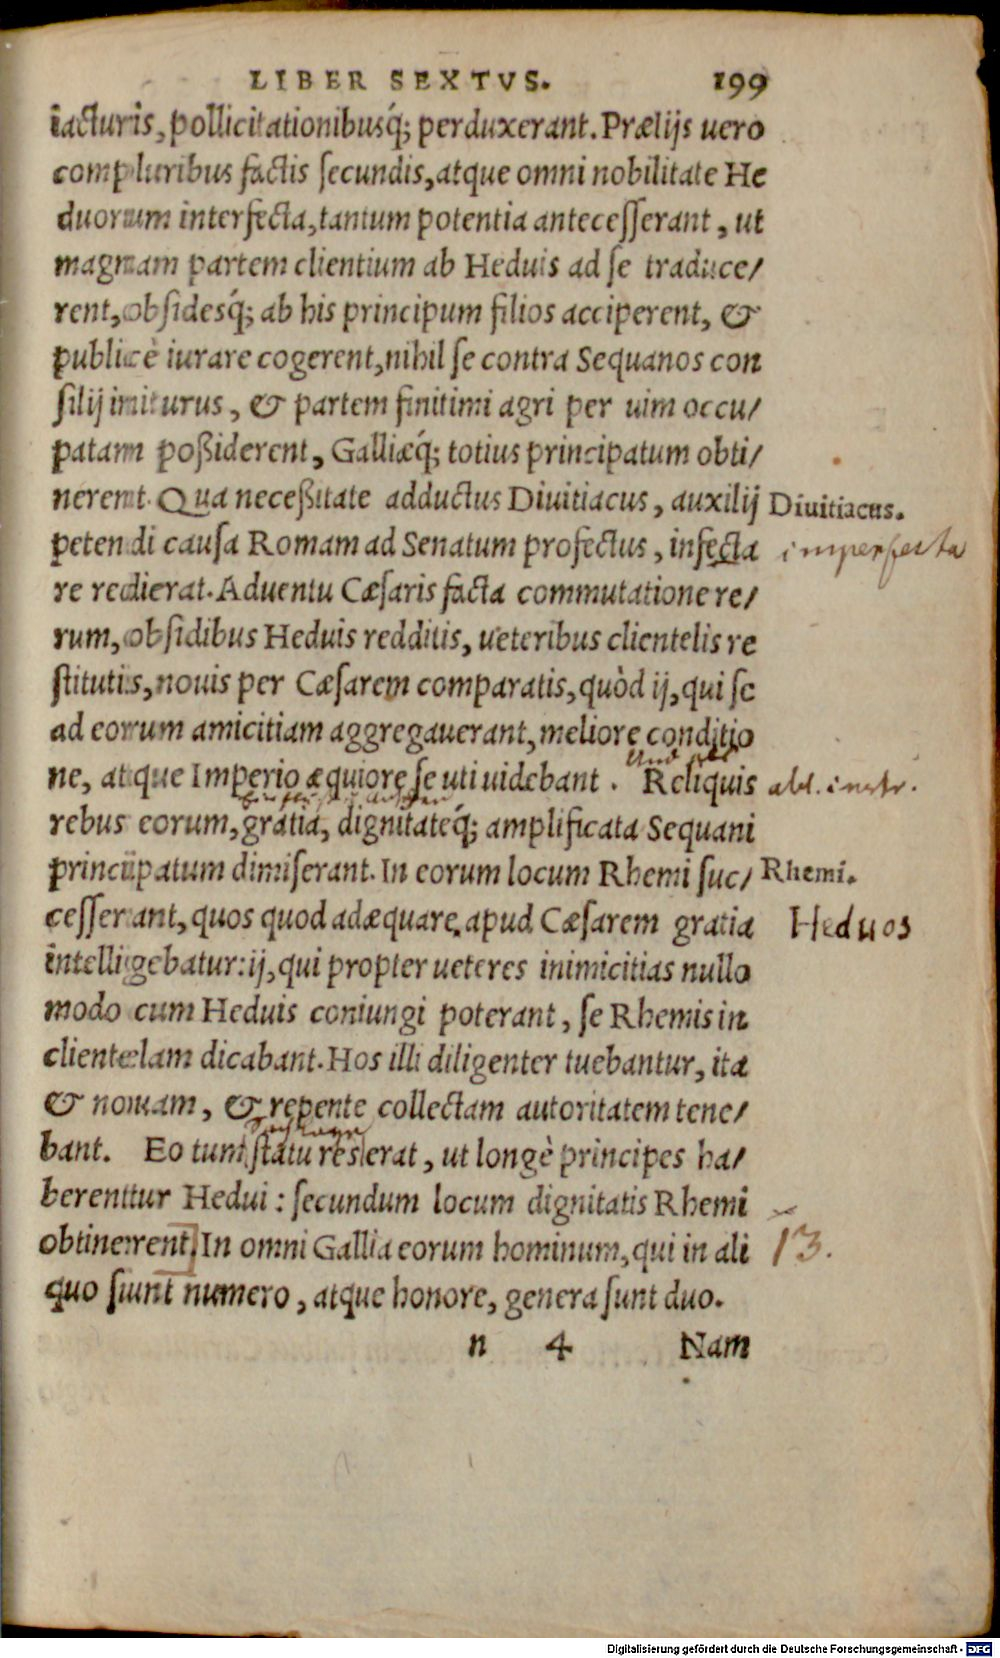 LIBER SEXTVS. 199
iacturis, pollicitationibusq́; perduxerant. Prælijs uero
compluribus factis secundis, atque omni nobilitate He
duorum interfecta, tantum potentia antecesserant, ut
magnam partem clientium ab Heduis ad se traduce/
rent, obsidesq́; ab his principum filios acciperent, &
publicè iurare cogerent, nihil se contra Sequanos con
silij inituturus, & partem finitimi agri per uim occu/
patam poßiderent, Galliæq́; totius principatum obti/
nerent. Qua neceßitate adductus Diuitiacus, auxilij Diuitiacus.
petendi causa Romam ad Senatum profectus, infecta imperfecta
re redierat. Aduentu Cæsaris facta commutatione re/
rum, obsidibus Heduis redditis, ueteribus clientelis re
stitutis, nouis per Cæsarem comparatis, quòd ij, qui se
ad eorum amicitiam aggregauerant, meliore conditio
ne, atque Imperio æquiore se uti uidebant. Reliquis abl. instr.
rebus eorum, gratia, dignitateq́; amplificata Sequani
principatum dimiserant. In eorum locum Rhemi suc/ Rhemi.
cesserant, quos quod adæquare apud Cæsarem gratia Heduos
intelligebatur: ij, qui propter ueteres inimicitias nullo
modo cum Heduis coniungi poterant, se Rhemis in
clientelam dicabant. Hos illi diligenter tuebantur, ita
& nouam, & repente collectam autoritatem tene/
bant. Eo tum statu res erat, ut longè principes ha/
berentur Hedui: secundum locum dignitatis Rhemi
obtinerent. In omni Gallia eorum hominum, qui in ali 13.
quo sunt numero, atque honore, genera sunt duo.
n 4 Nam
Digitalisierung gefördert durch die Deutsche Forschungsgemeinschaft - DFG